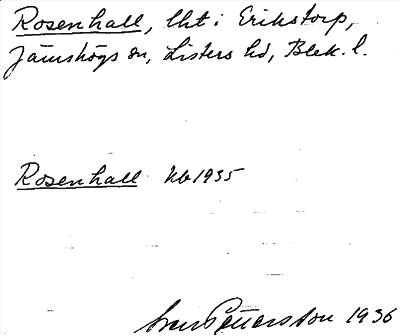 Rosenhall, lht i Erikstorp,
Jämshögs sn, Listers hd, Blek. l.
Rosenhall Kb 1935
Sven Pettersson 1936